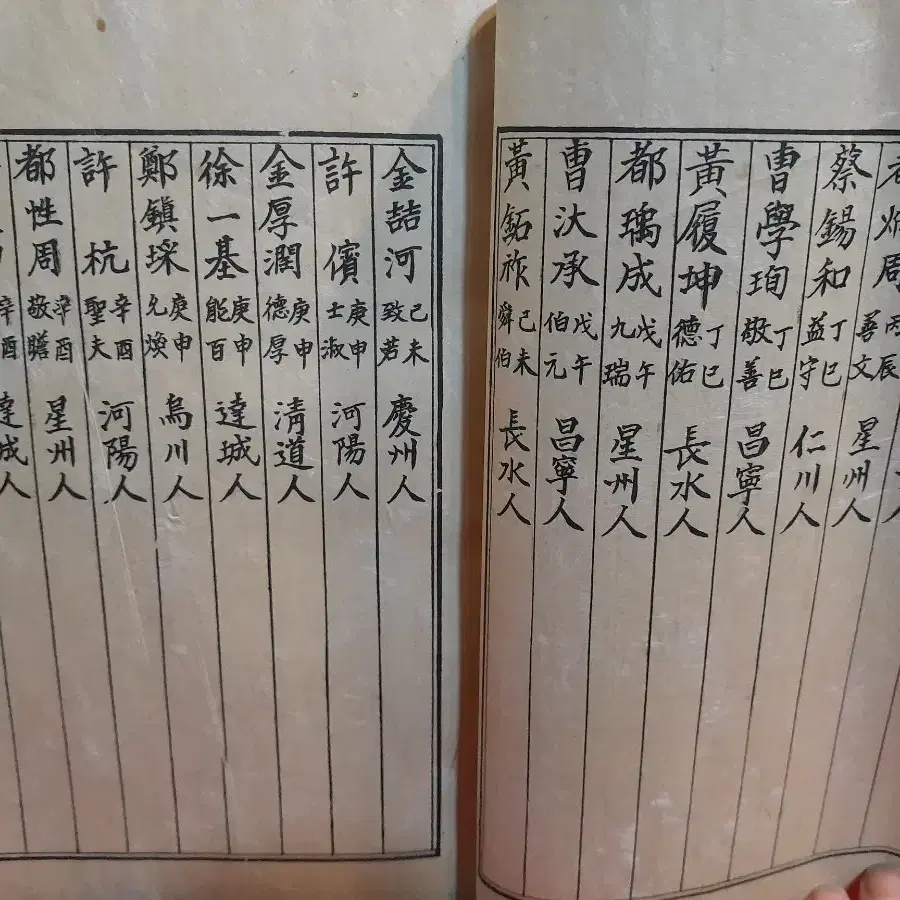 炳周 丙辰 善文 星州人
蔡錫和 丁巳 益守 仁川人
曺學珣 丁巳 敬善 昌寧人
黃履坤 丁巳 德佑 長水人
都瑀成 戊午 九瑞 星州人
曺汏承 戊午 伯元 昌寧人
黃鉐祚 己未 舜伯 長水人
金喆河 己未 致若 慶州人
許儐 庚申 士淑 河陽人
金厚潤 庚申 德厚 淸道人
徐一基 庚申 能百 達城人
鄭鎭埰 庚申 允煥 烏川人
許杭 辛酉 聖夫 河陽人
都性周 辛酉 敬瞻 星州人
辛酉 達城人